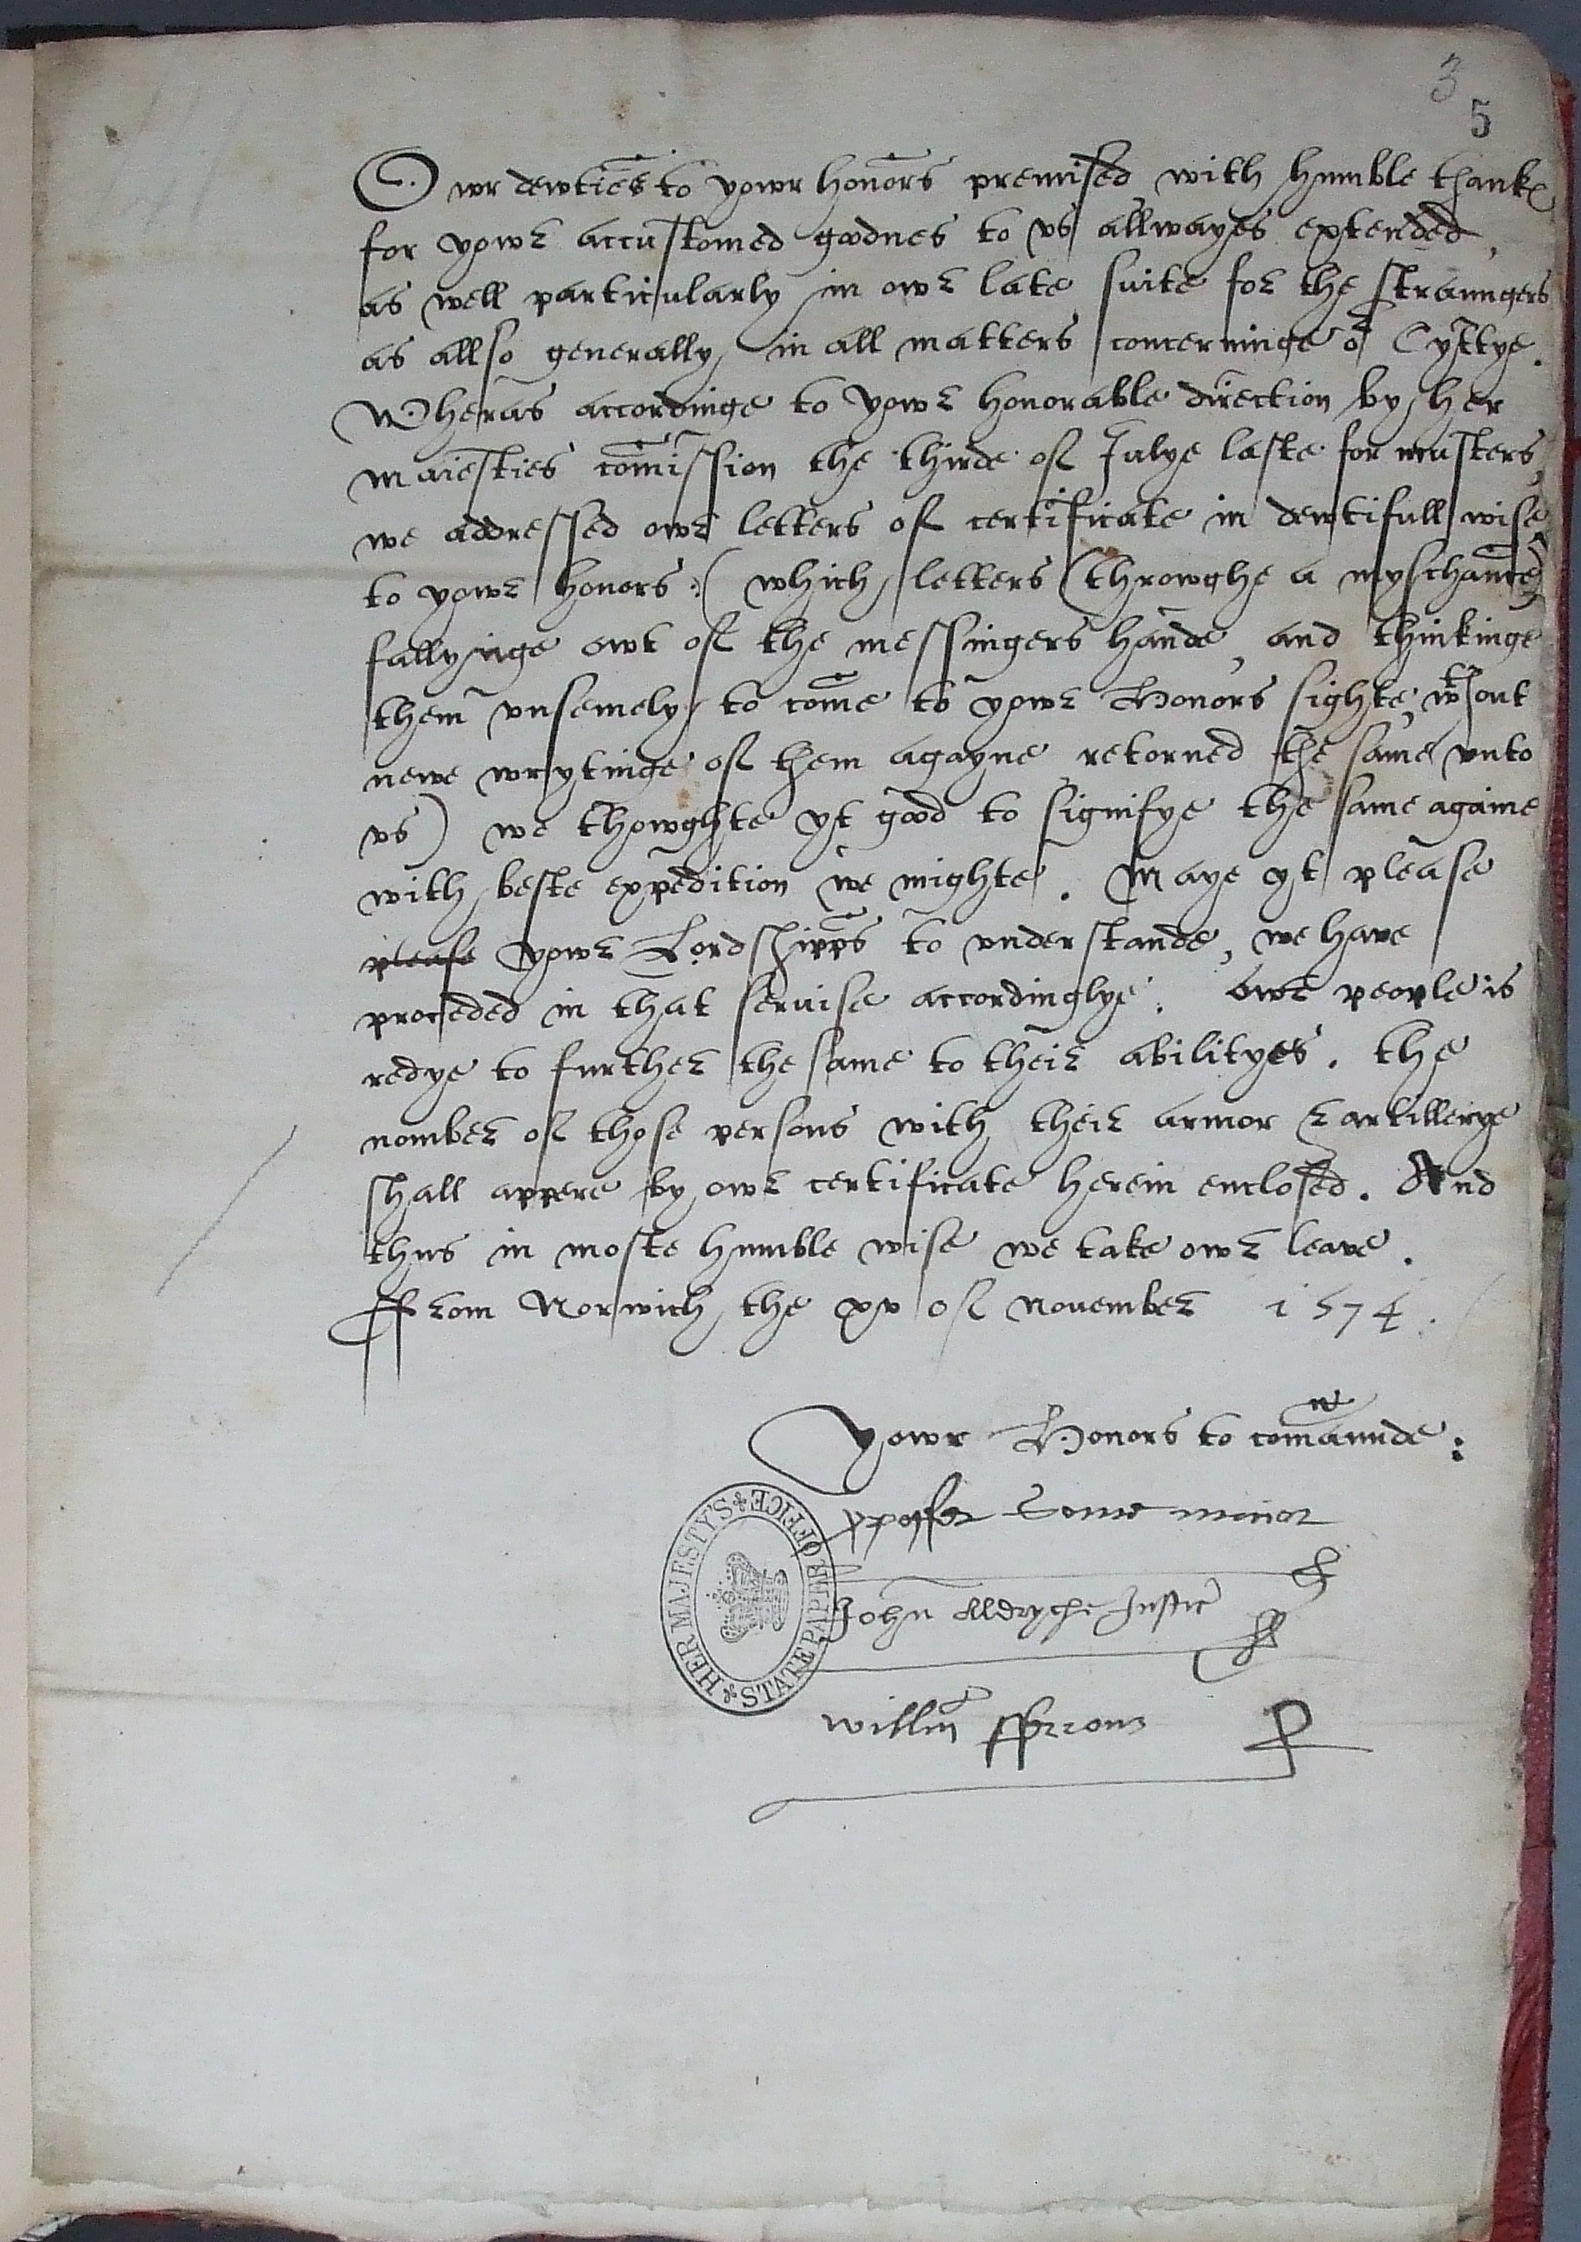 3
5
Owr dewties to yowr honors premised with humble thankes
for yowr accustomed goodnes to vs allwayes extended,
as well particularly in owr late suite for the straungers
as allso generally in all matters concerninge or Cyttye.
Wheras accordinge to yowr honorable direction by her
maiesties comission the thirde of Julye laste for musters,
we addressed owr letters of certificate in dewtifull wise
to yowr honors: (which letters (throwghe a myschance)
fallynge owt of the messingers hande, and thinkinge
them vnsemely to come to yowr Honors sighte, wthout
newe wrytinge of them agayne retorned the same vnto
vs) we thowghte yt good to signifye the same againe
with beste expedition we mighte. Maye yt please
please yowr Lordshipps to vnderstande, we have
proceded in that seruise accordinglye. owr people is
redye to further the same to their abilityes. the
nomber of those persons with their armor & artillerye
shall appere by owr certificate herein enclosed. And
thus in moste humble wise we take owr leave.
ffrom Norwich the xv of November 1574.
Yowr Honors to comaunde:
xpoffer Some maior
John Aldryche Justic
Willm fferrour
HER MAJESTY'S STATE PAPER OFFICE